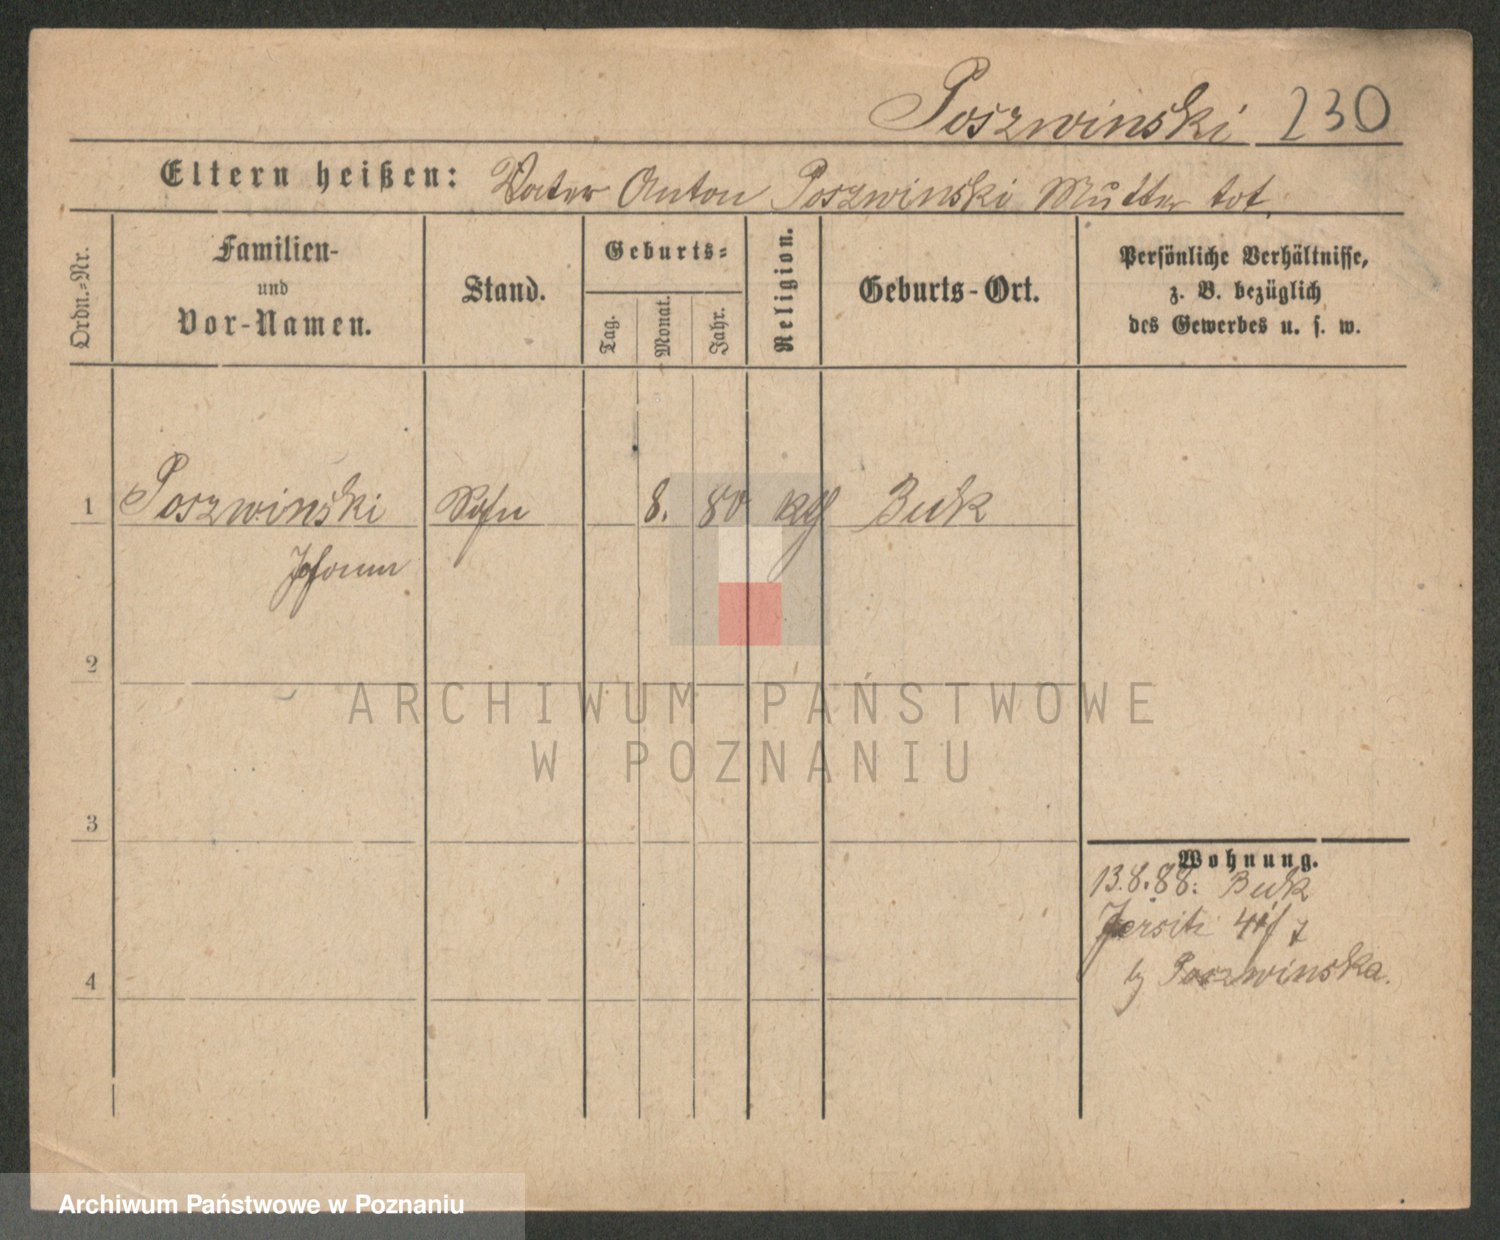 Poszwinski 230
Eltern heißen: Vater Anton Poszwinski Mutter tot.
Ordn.-Nr.
Familien-
und
Vor-Namen.
Stand.
Geburts-
Tag.
Monat.
Jahr.
Religion.
Geburts-Ort.
Persönliche Verhältnisse,
z. B. bezüglich
des Gewerbes u. s. w.
1 Poszwinski Sohn 8. 80 kth Buk
Johann
2
3
4
Wohnung.
13.8.88: Buk
Jersitz
b/ Poszwinska.
ARCHIWUM PAŃSTWOWE
W POZNANIU
Archiwum Państwowe w Poznaniu